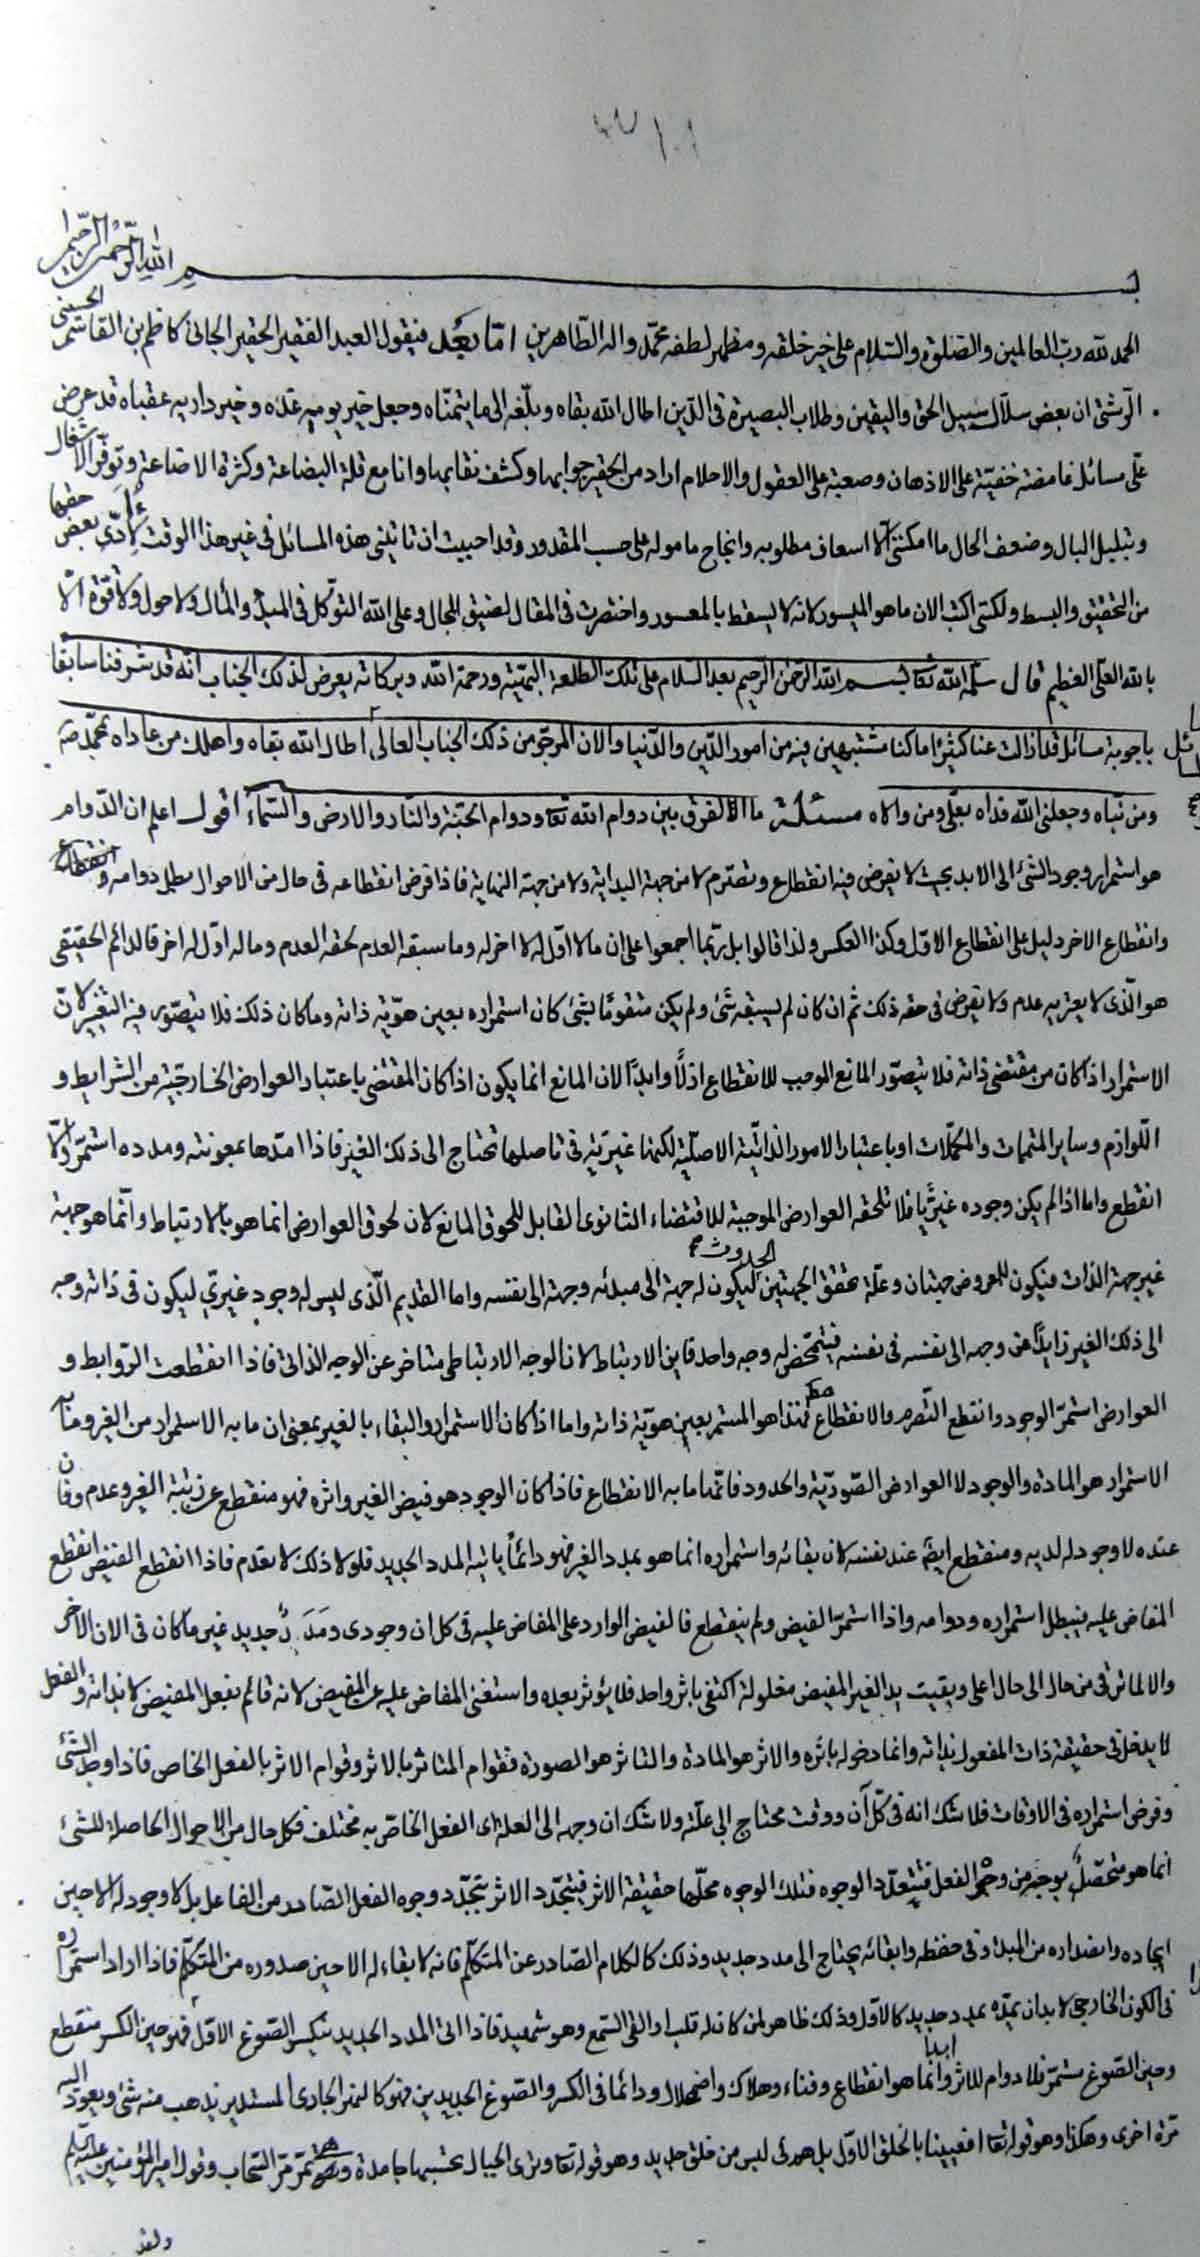 بسم الله الرحمن الرحيم
الحمد لله رب العالمين والصلوة والسلام على خير خلقه ومظهر لطفه محمد واله الطاهرين اما بعد فيقول العبد الفقير الحقير الجانى كاظم بن القاسم الحسينى
الرشتى ان بعض سلاك سبيل الحق واليقين وطلاب البصيرة فى الدين اطال الله بقاه وبلغه الى ما يتمناه وجعل خير يوميه غده وخير داريه عقباه قد عرض
على مسائل غامضة خفية على الاذهان وصعبة على العقول والاحلام اراد من الحقير جوابها وكشف نقابها وانا مع قلة البضاعة وكثرة الاضاعة وتوفر الاشغال
وتبلبل البال وضعف الحال ما امكننى الا اسعاف مطلوبه وانجاح ماموله على حسب المقدور وقد احببت ان تاتينى هذه المسائل فى غير هذا الوقت لأؤدى بعض حقها
من التحقيق والبسط ولكنى اكتب الان ما هو الميسور لانه لا يسقط بالمعسور واختصرت فى المقال لضيق المجال وعلى الله التوكل فى المبدء والمآل ولا حول ولا قوة الا
بالله العلى العظيم قال سلمه الله تعا بسم الله الرحمن الرحيم بعد السلام على تلك الطلعة البهية ورحمة الله وبركاته يعرض لذلك الجناب انه قد شرفنا سابقا
باجوبة مسائل قد ازالت عنا كثيرا ما كنا مشتبهين فيه من امور الدين والدنيا والان المرجو من ذلك الجناب العالى اطال الله بقاه واهلك من عاداه بمحمد ص
ومن نباه وجعلنى الله فداه بعلى ومن والاه مسئلة ما الفرق بين دوام الله تعا ودوام الجنة والنار والارض والسماء اقول اعلم ان الدوام
هو استمرار وجود الشئ الى الابد بحيث لا يفرض فيه انقطاع وتصرم لا من جهة البداية ولا من جهة النهاية فاذا فرض انقطاعه فى حال من الاحوال بطل دوامه وانقطاع
وانقطاع الاخر دليل على انقطاع الاول وكذا العكس ولذا قالوا بل ربما اجمعوا على ان ما لا اول له لا اخر له وما سبقه العدم لحقه العدم وما له اول له اخر فالدائم الحقيقى
هو الذى لا يعتريه عدم ولا يفرض فى حقه ذلك ثم ان كان لم يسبقه شئ ولم يكن متقوما بشئ كان استمراره بعين هوية ذاته وما كان ذلك فلا يتصور فيه التغير لان
الاستمرار اذا كان من مقتضى ذاته فلا يتصور المانع الموجب للانقطاع ازلا وابدا لان المانع انما يكون اذا كان المقتضى باعتبار العوارض الخارجية من الشرايط و
اللوازم وساير المتممات والمكملات او باعتبار الامور الذاتية الاصلية لكنها غيرية فى تاصلها تحتاج الى ذلك الغير فاذا امدها بمعونته ومدده استمر والا
انقطع واما اذا لم يكن وجوده غيريا فلا تلحقه العوارض الموجبة للاقتضاء الثانوى القابل للحوق المانع لان لحوق العوارض انما هو بالارتباط وانما هو جهة
غير جهة الذات فيكون للعروض جهتان وعلة تحقق الجهتين الحدوث ليكون له جهة الى مبدئه وجهة الى نفسه واما القديم الذى ليس له وجود غيرى ليكون فى ذاته وجه
الى ذلك الغير زايدا عن وجهه الى نفسه فى نفسه فيتمحض له وجه واحد فاين الارتباط لان الوجه الارتباطى متاخر عن الوجه الذاتى فاذا انقطعت الروابط و
العوارض استمر الوجود وانقطع التصرم والانقطاع فهذا هو المستمر بعين هوية ذاته واما اذا كان الاستمرار والبقاء بالغير بمعنى ان ما به الاستمرار من الغير وما به
الاستمرار هو المادة والوجود لا العوارض الصورية والحدود فانها ما به الانقطاع فاذا كان الوجود هو فيض الغير واثره فهو منقطع عن رتبة الغير وعدم وفان
عنده لا وجود له لديه ومنقطع ايضا عند نفسه لان بقائه واستمراره انما هو بمدد الغير فهو دائما ياتيه المدد الجديد فلولا ذلك لانعدم فاذا انقطع الفيض انقطع
المفاض عليه فيبطل استمراره ودوامه واذا استمر الفيض ولم ينقطع فالفيض الوارد على المفاض عليه فى كل ان وجودى ومدد جديد غير ما كان فى الان الاخر
والا لما ترقى من حال الى حال اعلى وبقيت يد الغير المفيض مغلولة اكتفى باثر واحد فلا يؤثر بعده واستغنى المفاض عليه عن المفيض لانه قائم بفعل المفيض لا بذاته والفعل
لا يدخل فى حقيقة ذات المفعول بذاته وانما دخوله باثره والاثر هو المادة والتاثر هو الصورة فقوام المتاثر بالاثر وقوام الاثر بالفعل الخاص فاذا وجد الشئ
وفرض استمراره فى الاوقات فلا شك انه فى كل آن ووقت محتاج الى علته ولا شك ان وجهه الى العلة اى الفعل الخاص به مختلف فكل حال من الاحوال الحاصلة للشئ
انما هو متحصل بوجه من وجوه الفعل فتتعدد الوجوه فتلك الوجوه محلها حقيقة الاثر فيتجدد الاثر بتجدد وجوه الفعل الصادر من الفاعل بل لا وجود له الا حين
ايجاده واصداره من المبدء وفى حفظه وابقائه يحتاج الى مدد جديد وذلك كالكلام الصادر عن المتكلم فانه لا بقاء له الا حين صدوره من المتكلم فاذا اراد استمراره
فى الكون الخارجى لا بد ان يمده بمدد جديد كالاول وذلك ظاهر لمن كان له قلب او القى السمع وهو شهيد فاذا اتى المدد الجديد ينكسر الصوغ الاول فهو حين الكسر منقطع
وحين الصوغ مستمر فلا دوام للاثر ابدا وانما هو انقطاع وفناء وهلاك واضمحلال ودائما فى الكسر والصوغ الجديدين فهو كالنهر الجارى المستدير يذهب منه شئ ويعود اليه
مرة اخرى وهكذا وهو قوله تعا افعيينا بالخلق الاول بل هم فى لبس من خلق جديد وهو قوله تعا وترى الجبال تحسبها جامدة وهى تمر مر السحاب وقول امير المؤمنين عليه السلم
ولقد